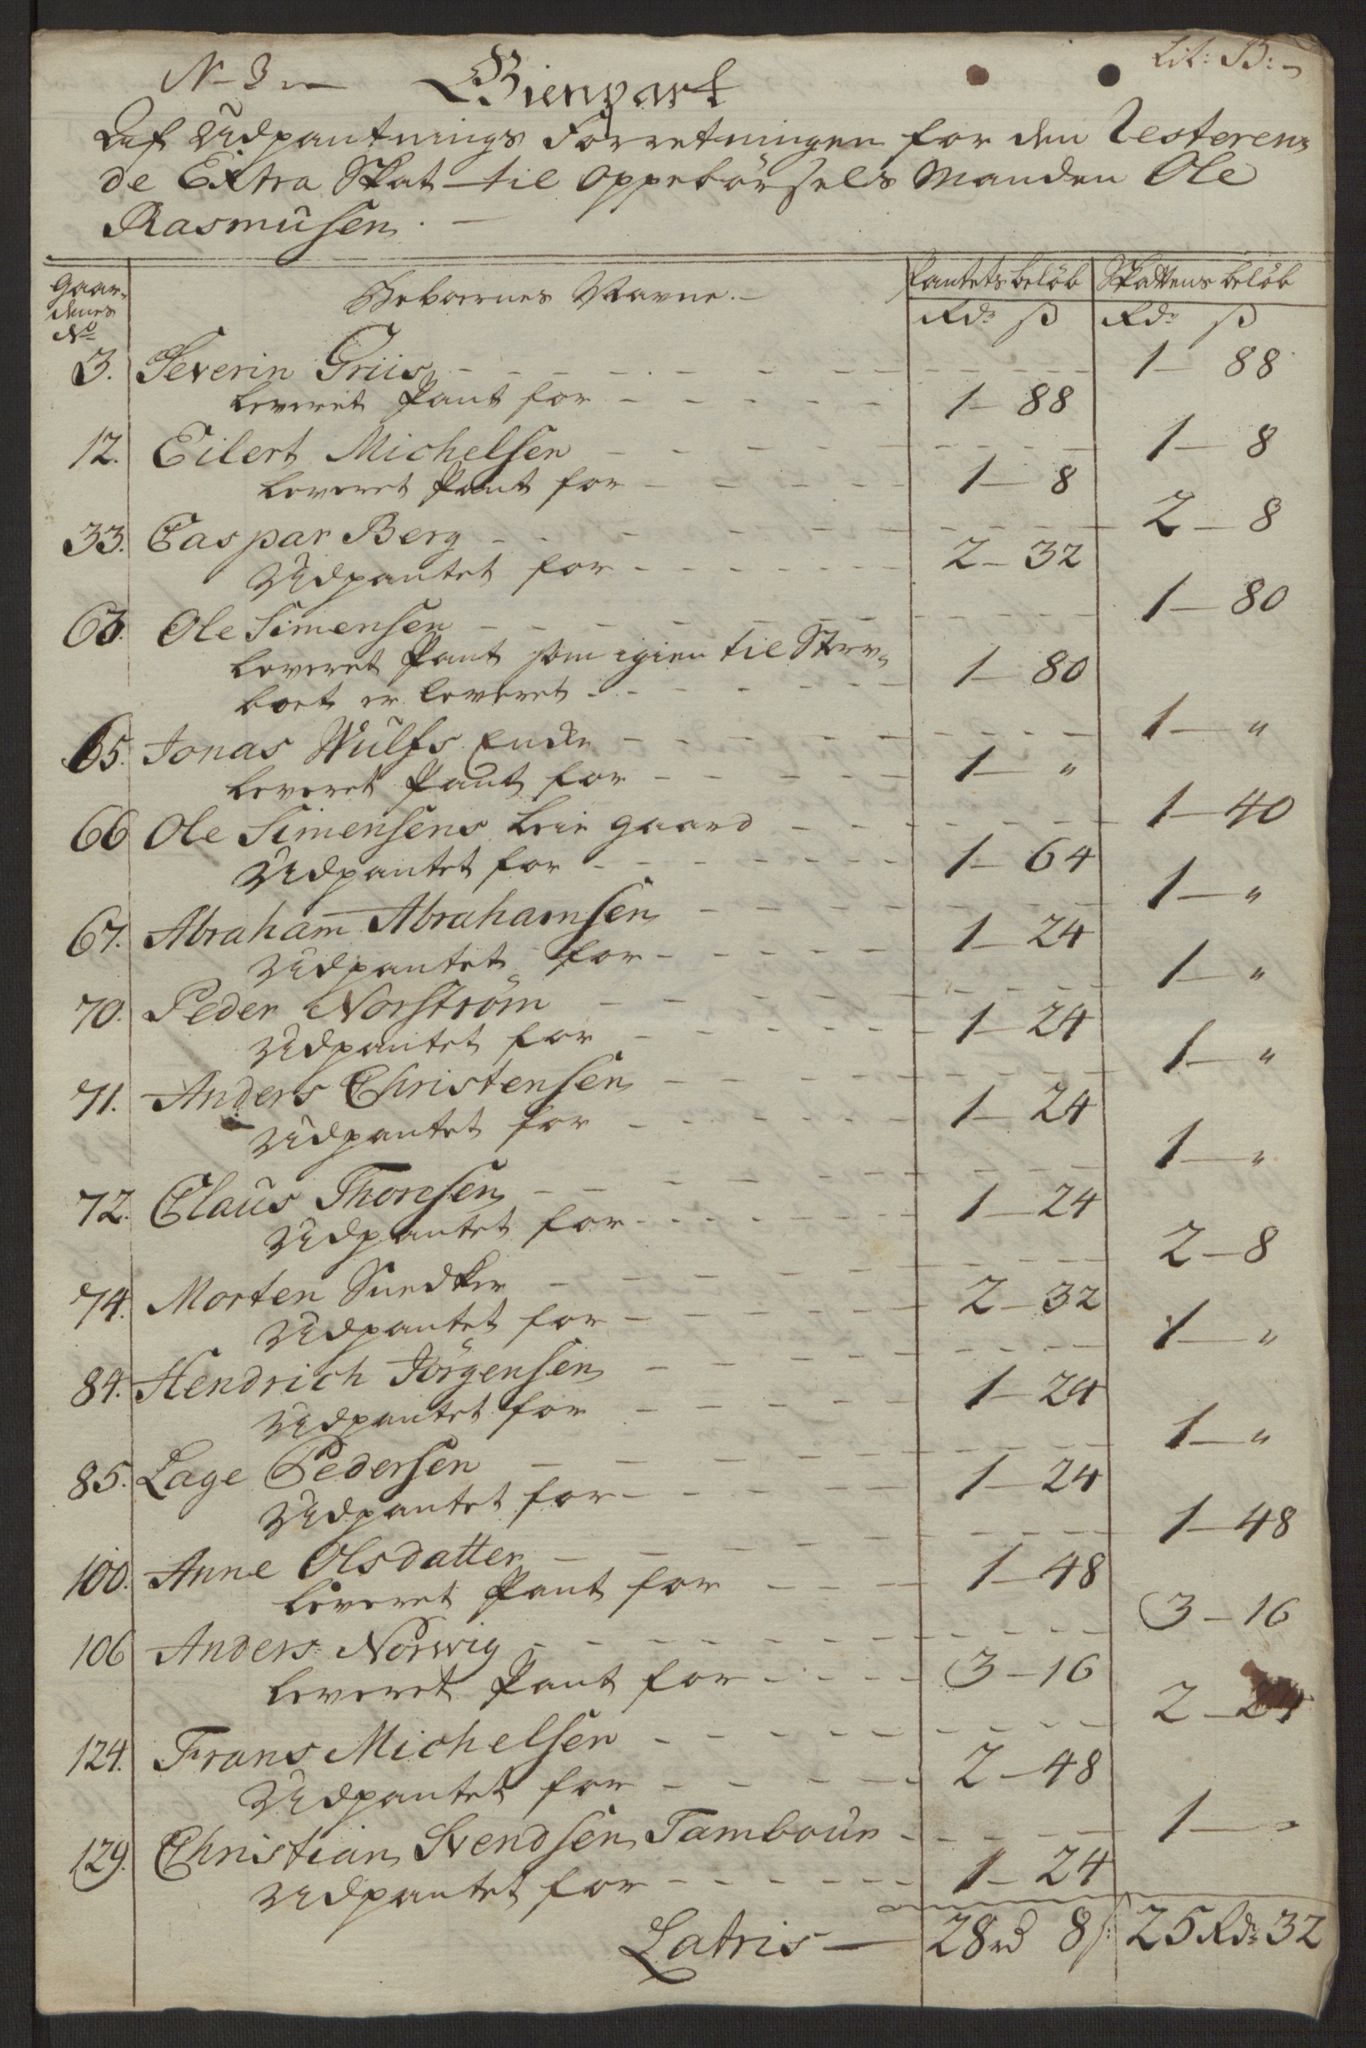 No 3
Lit: B:
Gienpart
Af Udpantnings Forretningen for den Resteren-
de Extra Skat til Oppebörsels Manden Ole
Rasmusen.
Gaar-
denes
No
Beboernes Navne.
Pantets beløb
Skattens beløb
Rdr ß
Rdr ß
3. Severin Griis 1 - 88
leveret Pant for 1 - 88
12. Eilert Michelsen 1 - 8
leveret Pant for 1 - 8
33. Caspar Berg 2 - 8
Udpantet for 2 - 32
63. Ole Simensen 1 - 80
leveret Pant som igien til Sterv-
boet er leveret 1 - 80
65. Jonas Wulfs Enke 1 - "
leveret Pant for 1 - "
66 Ole Simensens leie gaard 1 - 40
Udpantet for 1 - 64
67. Abraham Abrahamsen 1 - "
Udpantet for 1 - 24
70. Peder Norström 1 - "
Udpantet for 1 - 24
71. Anders Christensen 1 - "
Udpantet for 1 - 24
72. Claus Thoresen 1 - "
Udpantet for 1 - 24
74. Morten Snedker 2 - 8
Udpantet for 2 - 32
84. Hendrich Jörgensen 1 - "
Udpantet for 1 - 24
85. Lage Pedersen 1 - "
Udpantet for 1 - 24
100. Anne Olsdatter 1 - 48
leveret Pant for 1 - 48
106 Anders Norwig 3 - 16
leveret Pant for 3 - 16
124. Frans Michelsen 2 - 24
Udpantet for 2 - 48
129. Christian Svendsen Tambour 1 - "
Udpantet for 1 - 24
Latris 28 rd 8 ß: 25 Rdr 32